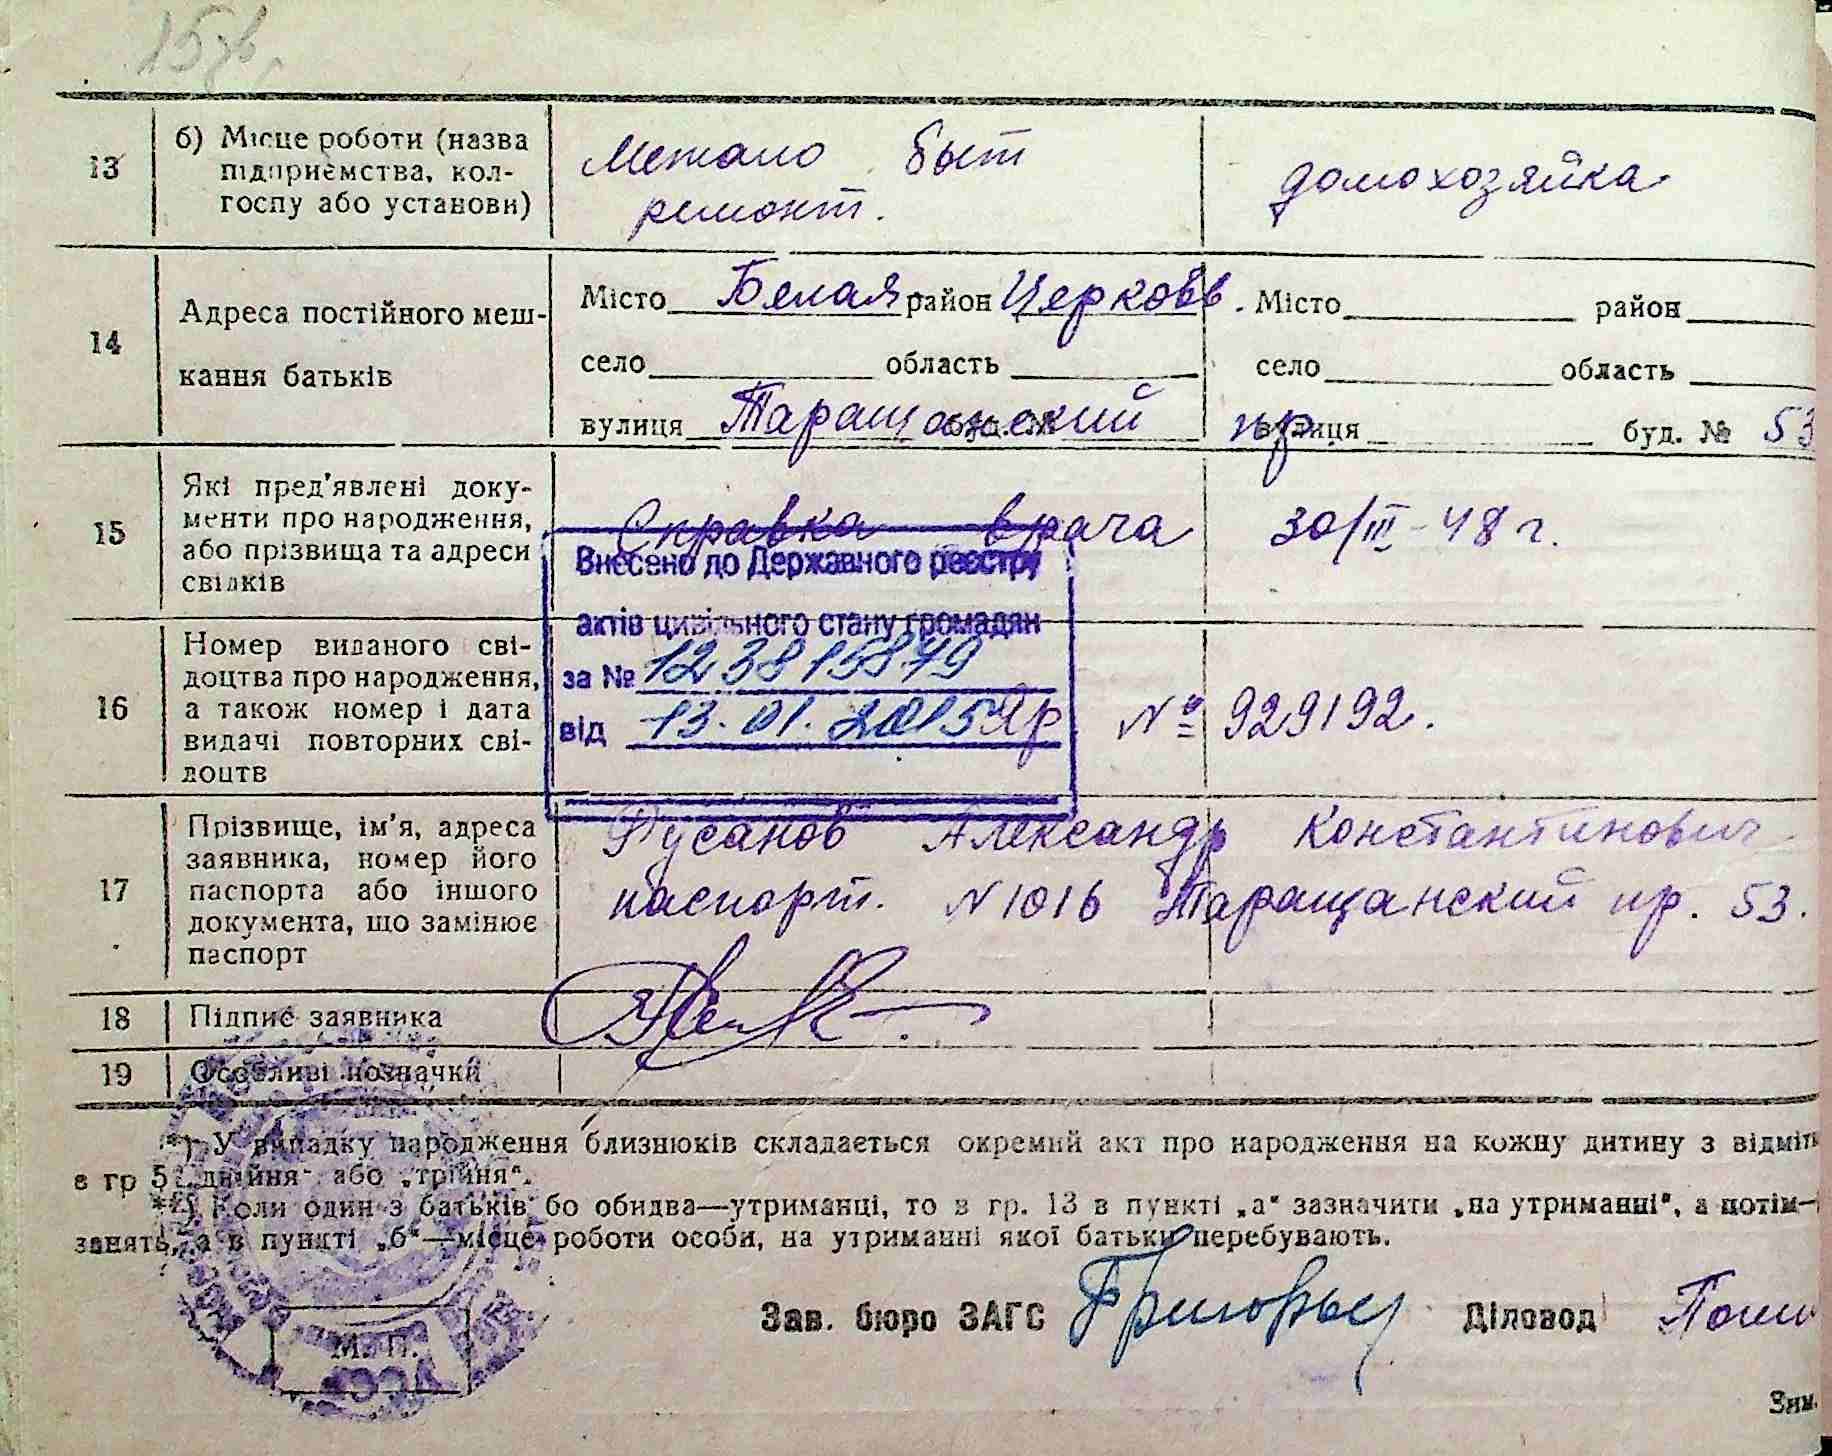 15зв
13 б) Місце роботи (назва підприємства, колгоспу або установи) Метало быт ремонт. домохозяйка
14 Адреса постійного мешкання батьків
Місто Белая район Церковь. Місто район
село область село область
вулиця Таращанский буд. № пр. вулиця буд. № 53
15 Які пред'явлені документи про народження, або прізвища та адреси свідків Справка врача 30/III-48 г.
Внесено до Державного реєстру
актів цивільного стану громадян
за № 123815879
від 13.01.2015
16 Номер виданого свідоцтва про народження, а також номер і дата видачі повторних свідоцтв № 929192.
17 Прізвище, ім'я, адреса заявника, номер його паспорта або іншого документа, що замінює паспорт
Русанов Александр Константинович
паспорт. N 1016 Таращанский пр. 53.
18 Підпис заявника
19 Особливі позначки
*) У випадку народження близнюків складається окремий акт про народження на кожну дитину з відміт
в гр 5 „двійня“ або „трійня“.
**) Коли один з батьків бо обидва—утриманці, то в гр. 13 в пункті „а“ зазначити „на утриманні“, а потім—
занять, а в пункті „б“—місце роботи особи, на утриманні якої батьки перебувають.
Зав. бюро ЗАГС Діловод
М. П.
УССР
Зим.